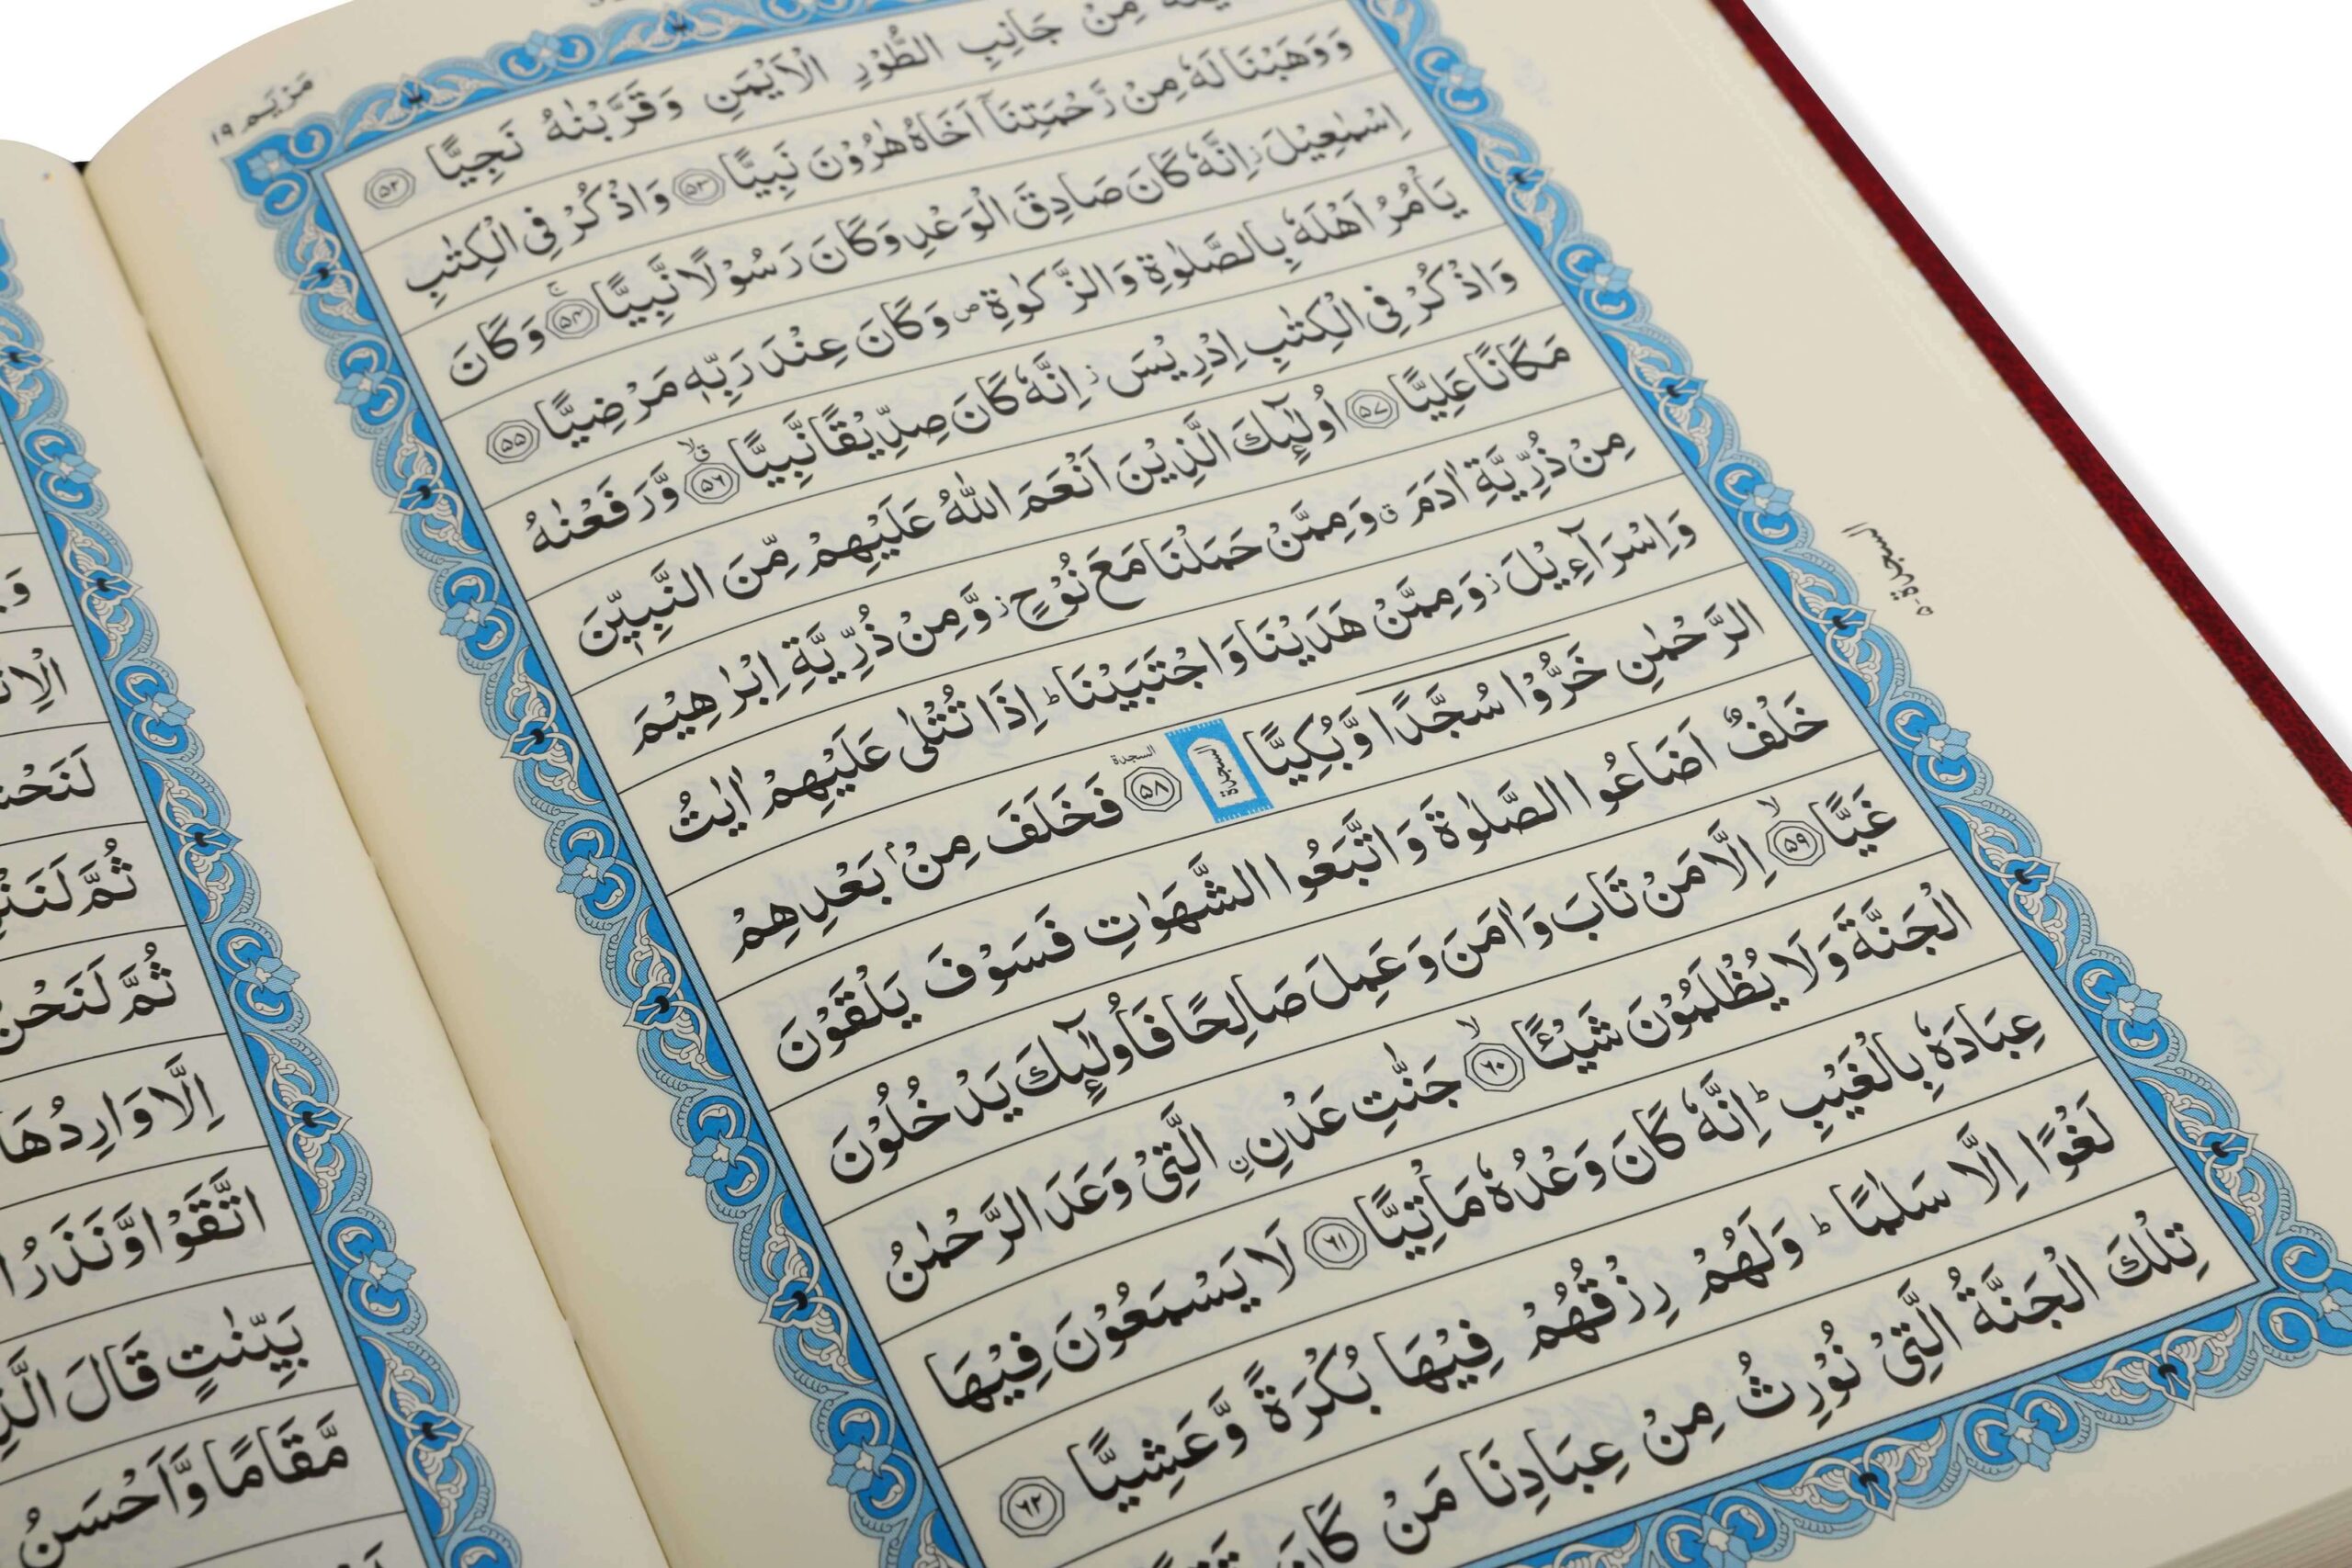 مَرْيَم ١٩
مِنْ جَانِبِ الطُّوْرِ الْاَيْمَنِ وَقَرَّبْنٰهُ نَجِيًّا ۝۵۲
وَوَهَبْنَا لَهٗ مِنْ رَّحْمَتِنَاۤ اَخَاهُ هٰرُوْنَ نَبِيًّا ۝۵۳ وَاذْكُرْ فِى الْكِتٰبِ
اِسْمٰعِيْلَ ز اِنَّهٗ كَانَ صَادِقَ الْوَعْدِ وَكَانَ رَسُوْلًا نَّبِيًّا ۝۵۴ۚ وَكَانَ
يَاْمُرُ اَهْلَهٗ بِالصَّلٰوةِ وَالزَّكٰوةِ ص وَكَانَ عِنْدَ رَبِّهٖ مَرْضِيًّا ۝۵۵
وَاذْكُرْ فِى الْكِتٰبِ اِدْرِيْسَ ز اِنَّهٗ كَانَ صِدِّيْقًا نَّبِيًّا ۝۵۶ ق لا وَّرَفَعْنٰهُ
مَكَانًا عَلِيًّا ۝۵۷ اُولٰٓئِكَ الَّذِيْنَ اَنْعَمَ اللّٰهُ عَلَيْهِمْ مِّنَ النَّبِيّٖنَ
مِنْ ذُرِّيَّةِ اٰدَمَ ق وَمِمَّنْ حَمَلْنَا مَعَ نُوْحٍ ز وَّمِنْ ذُرِّيَّةِ اِبْرٰهِيْمَ
وَاِسْرَآءِيْلَ ز وَمِمَّنْ هَدَيْنَا وَاجْتَبَيْنَا ط اِذَا تُتْلٰى عَلَيْهِمْ اٰيٰتُ
الرَّحْمٰنِ خَرُّوْا سُجَّدًا وَّبُكِيًّا السجدة ۝۵۸ السجدة فَخَلَفَ مِنْۢ بَعْدِهِمْ
السجدة ۵
خَلْفٌ اَضَاعُوا الصَّلٰوةَ وَاتَّبَعُوا الشَّهَوٰتِ فَسَوْفَ يَلْقَوْنَ
غَيًّا ۝۵۹ لا اِلَّا مَنْ تَابَ وَاٰمَنَ وَعَمِلَ صَالِحًا فَاُولٰٓئِكَ يَدْخُلُوْنَ
الْجَنَّةَ وَلَا يُظْلَمُوْنَ شَيْئًا ۝۶۰ لا جَنّٰتِ عَدْنِ ࣙالَّتِىْ وَعَدَ الرَّحْمٰنُ
عِبَادَهٗ بِالْغَيْبِ ط اِنَّهٗ كَانَ وَعْدُهٗ مَاْتِيًّا ۝۶۱ لَا يَسْمَعُوْنَ فِيْهَا
لَغْوًا اِلَّا سَلٰمًا ط وَلَهُمْ رِزْقُهُمْ فِيْهَا بُكْرَةً وَّعَشِيًّا ۝۶۲
تِلْكَ الْجَنَّةُ الَّتِىْ نُوْرِثُ مِنْ عِبَادِنَا مَنْ كَانَ
لَنَحْنُ
ثُمَّ لَنَحْنُ
اِلَّا وَارِدُهَا
اتَّقَوْا وَّنَذَرُ
بَيِّنٰتٍ قَالَ
مَّقَامًا وَّاَحْسَنُ